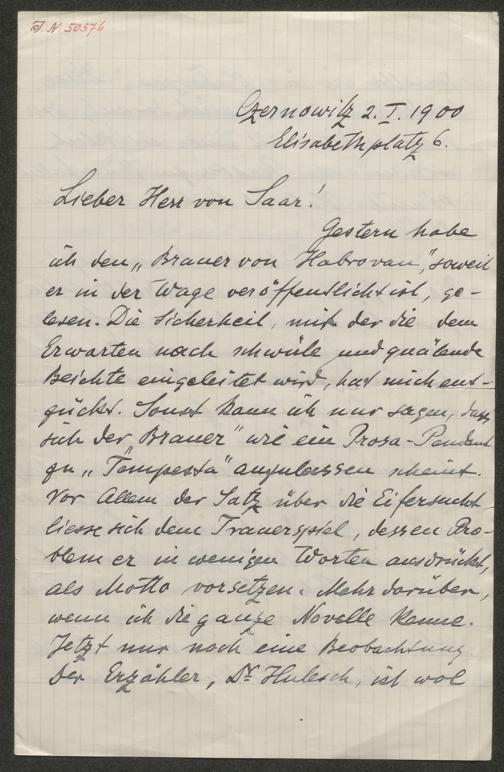 I. N. 50576
Czernowitz 2. I. 1900
Elisabethplatz 6.
Lieber Herr von Saar!
Gestern habe
ich den „Brauer von Habrovan", soweit
er in der Wage veröffentlicht ist, ge-
lesen. Die Sicherheit, mit der die dem
Erwarten nach schwüle und quälende
Beichte eingeleitet wird, hat mich ent-
zückt. Sonst kann ich nur sagen, dass
sich der „Brauer" wie ein Prosa-Pendant
zu „Tempesta" anzulassen scheint.
Vor Allem der Satz über die Eifersucht
liesse sich dem Trauerspiel, dessen Pro-
blem er in wenigen Worten ausdrückt,
als Motto vorsetzen. Mehr darüber,
wenn ich die ganze Novelle kenne.
Jetzt nur noch eine Beobachtung
Der Erzähler, Dr. Hulesch, ist wol